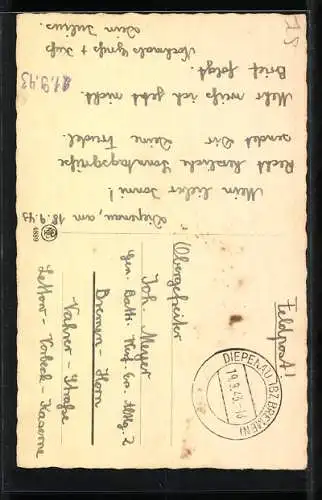 Diepenau, am 18.9.43
Mein lieber Jonni!
Recht herzliche Sonntagsgrüße
sendet Dir Deine Trudel.
Mehr weiß ich jetzt nicht.
Brief folgt.
Nochmals Gruß + Kuß
Dein Julius.
21.9.43
4899
Feldpost!
DIEPENAU (BZ. BREMEN)
19.9.43
Obergefreiter
Joh. Meyer
Gen. Battr. Abtlg. 2
Bremen-Horn
Vahrer-Straße
Lettow-Vorbeck-Kaserne